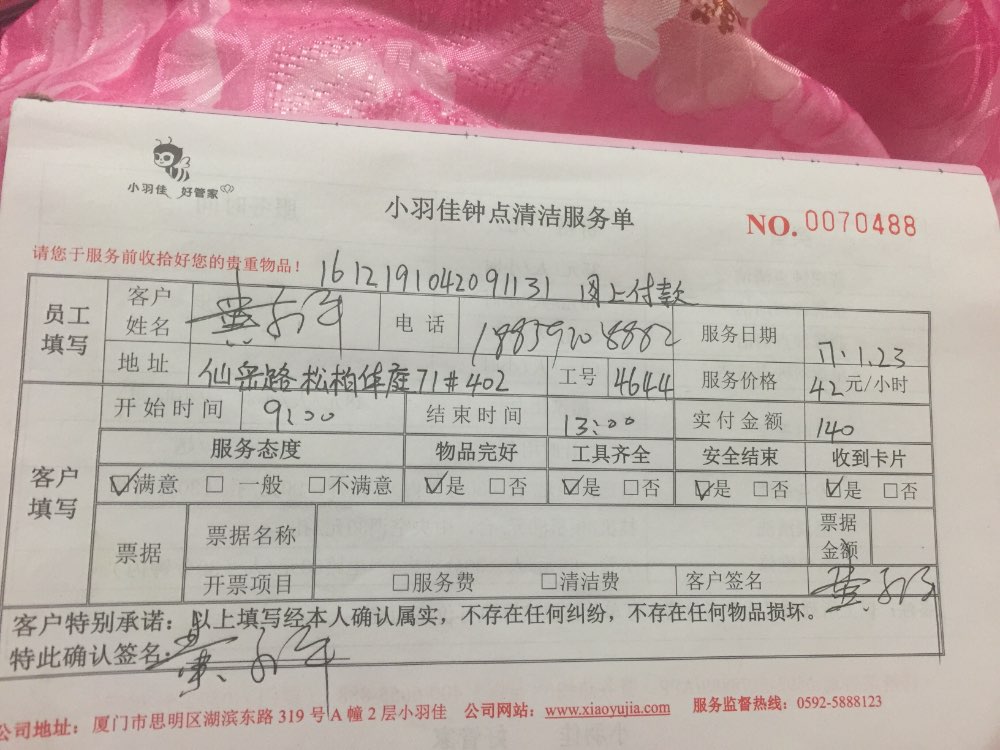 小羽佳 好管家
小羽佳钟点清洁服务单
NO. 0070488
请您于服务前收拾好您的贵重物品！
1612191042091131 网上付款
员工填写 客户姓名 黄 电话 18859208882 服务日期 17.1.23
地址 仙岳路松柏体庭71#402 工号 4644 服务价格 42元/小时
客户填写 开始时间 9:00 结束时间 13:00 实付金额 140
服务态度 物品完好 工具齐全 安全结束 收到卡片
☑满意 □一般 □不满意 ☑是 □否 ☑是 □否 ☑是 □否 ☑是 □否
票据 票据名称 票据金额
开票项目 □服务费 □清洁费 客户签名 黄
客户特别承诺：以上填写经本人确认属实，不存在任何纠纷，不存在任何物品损坏。
特此确认签名: 黄
公司地址：厦门市思明区湖滨东路319号A幢2层小羽佳 公司网站：www.xiaoyujia.com 服务监督热线：0592-5888123